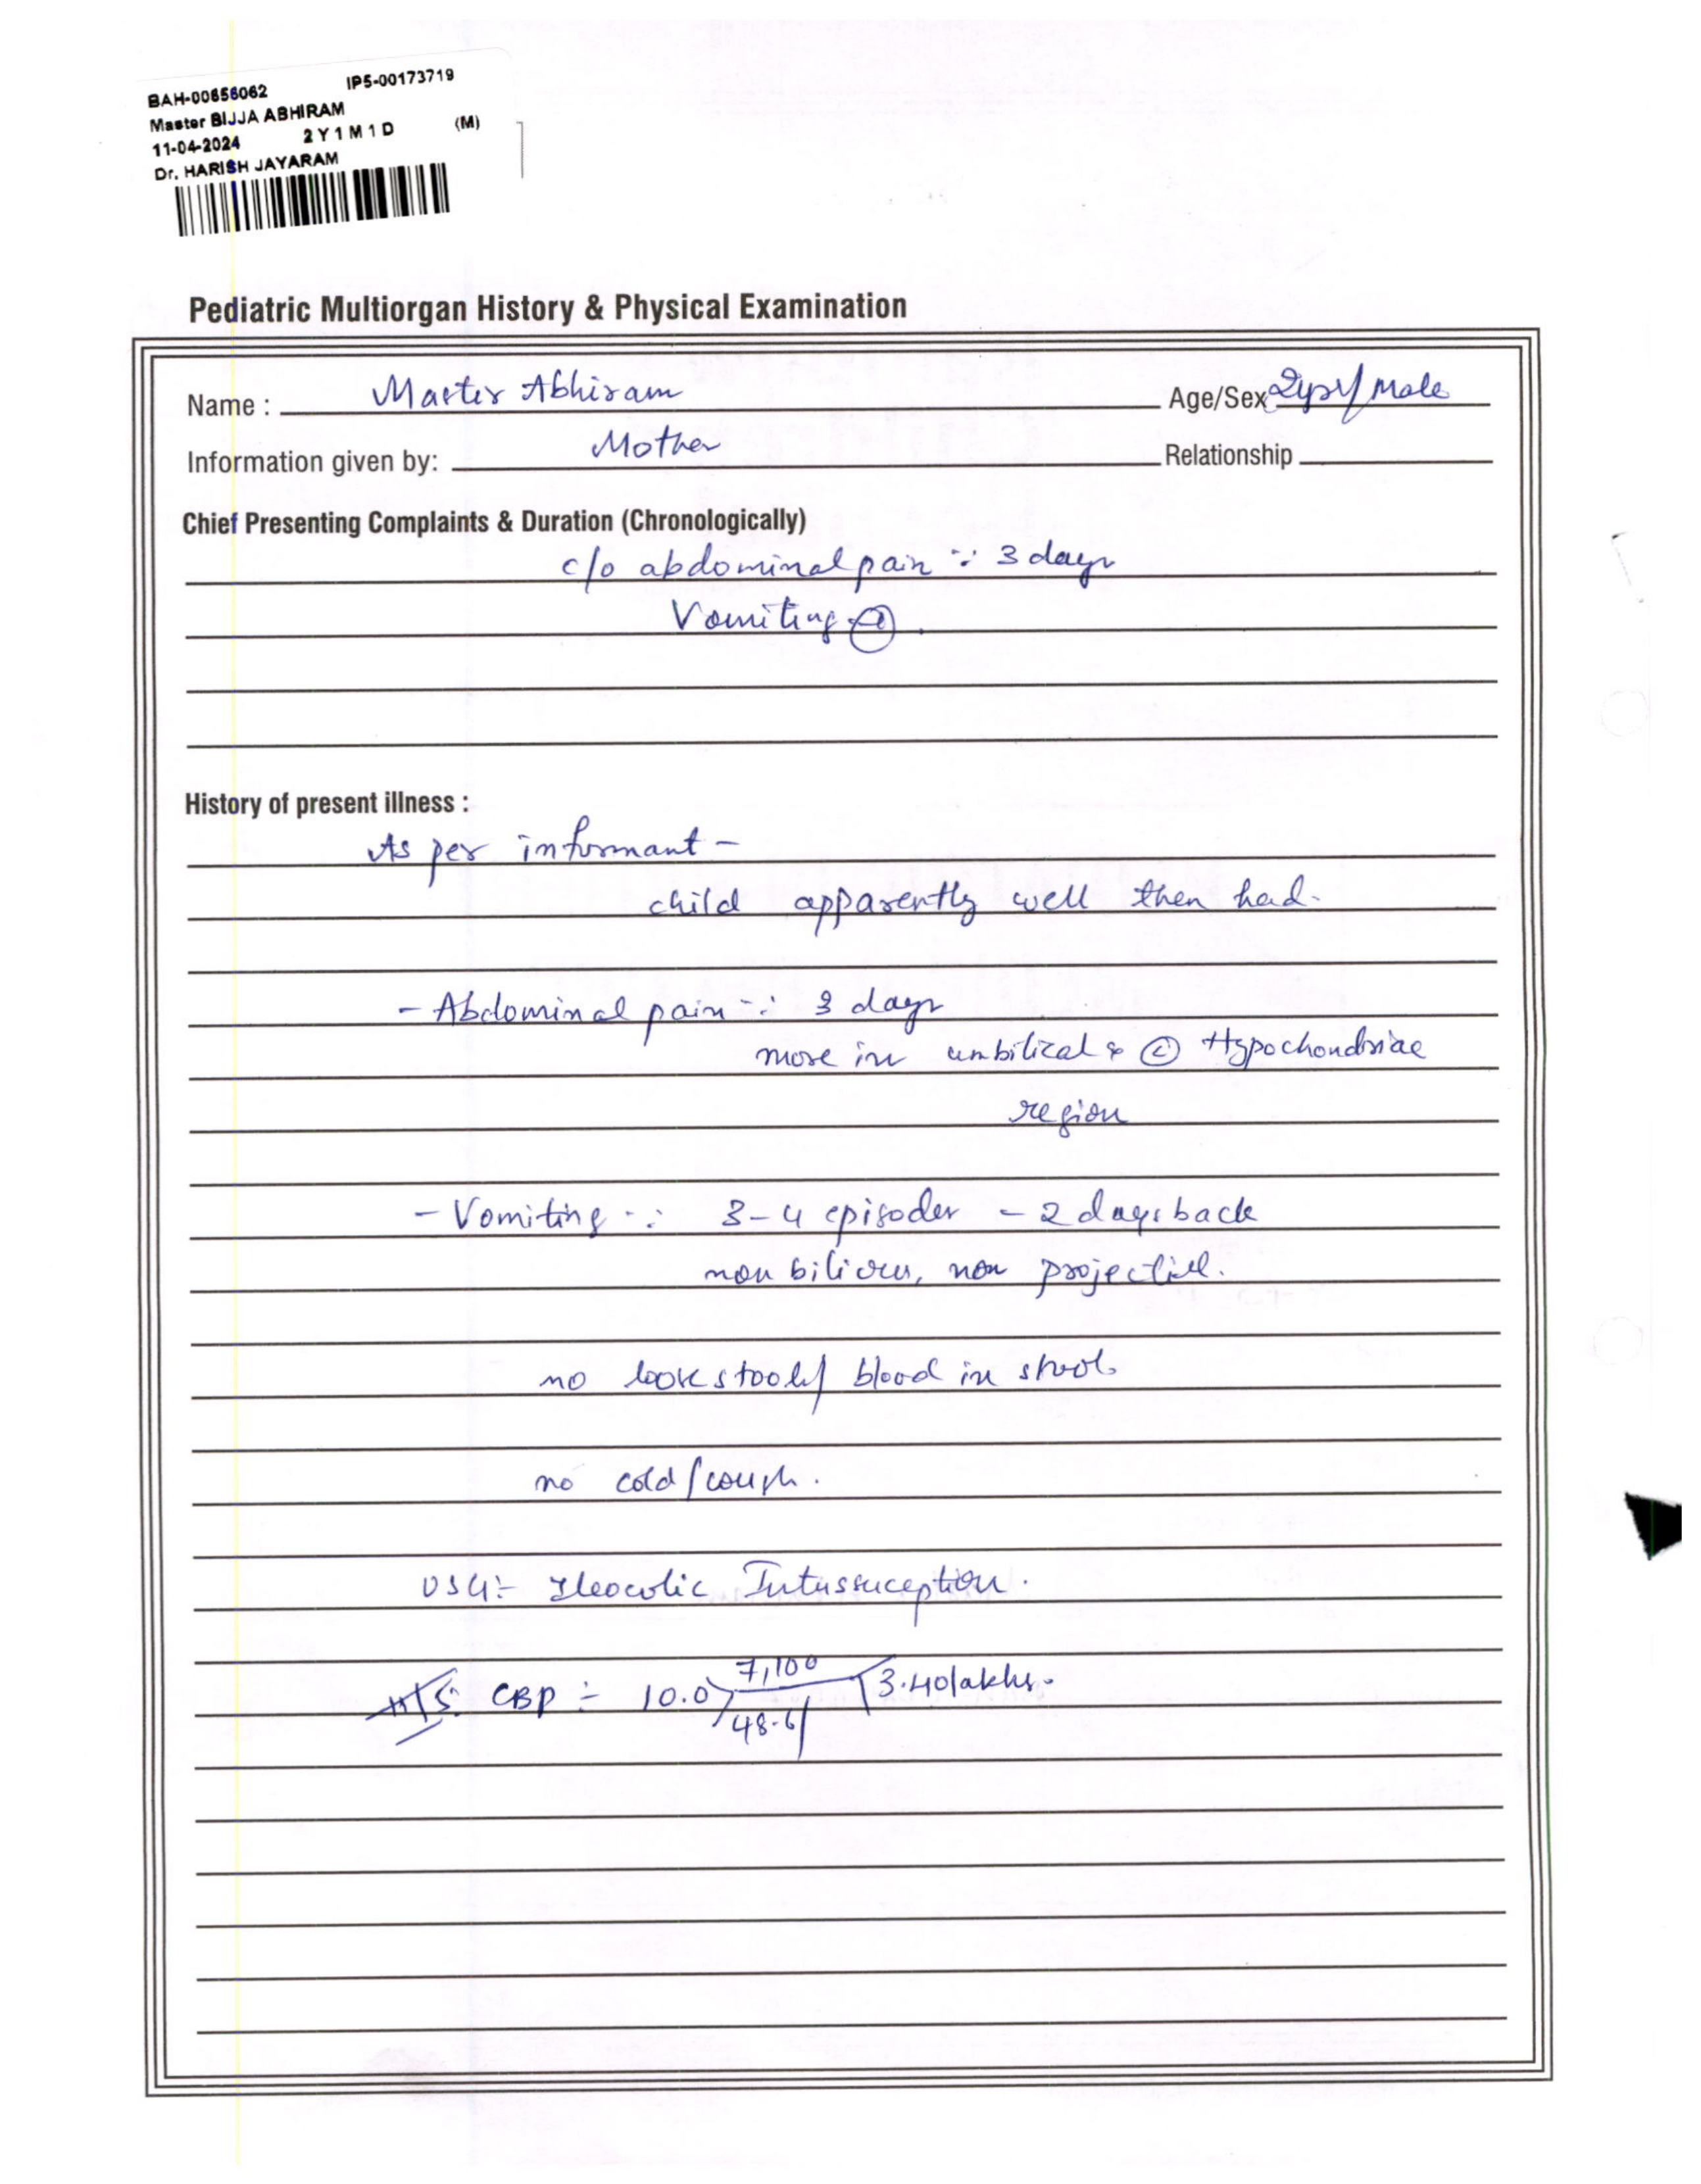 BAH-00656062 IP5-00173719
Master BIJJA ABHIRAM
11-04-2024 2Y1M1D (M)
Dr. HARISH JAYARAM
Pediatric Multiorgan History & Physical Examination
Name : Master Abhiram Age/Sex 2yr/Male
Information given by: Mother Relationship
Chief Presenting Complaints & Duration (Chronologically)
c/o abdominal pain :: 3 days
Vomiting
History of present illness :
As per informant -
child apparently well then had.
- Abdominal pain :: 3 days
more in umbilical & Ⓛ Hypochondriac
region
- Vomiting :: 3-4 episodes - 2 days back
non bilious, non projectile.
no loose stools/ blood in stools
no cold/cough.
USG:- Ileocolic Intussuception.
CBP :- 10.0 7,100 3.40lakhs.
48.6